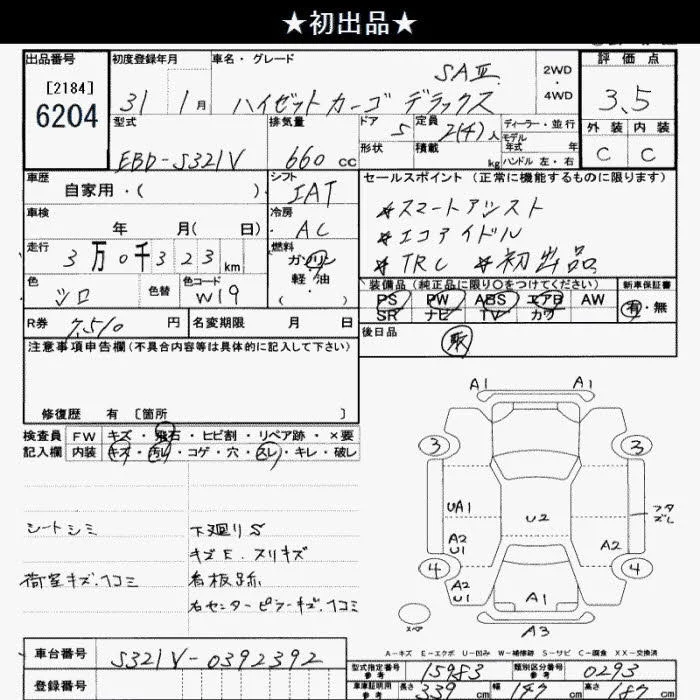 ★初出品★
出品番号
[2184]
6204
初度登録年月
31 1月
車名・グレード
SAⅢ
ハイゼットカーゴ デラックス
2WD
・
4WD
評価点
3.5
外装 内装
C C
型式
EBD-S321V
排気量
660 cc
ドア
5
定員
2(4)人
ディーラー・並行
モデル
年式 年
形状
積載
kg
ハンドル 左・右
車歴
自家用・( )
シフト
IAT
セールスポイント(正常に機能するものに限ります)
*スマートアシスト
*エコアイドル
*TRC *初出品
車検
年 月( 日)
冷房
AC
走行
3万0千323km
燃料
ガソリン
軽・油
・
( )
色
シロ
色替
色コード
W19
装備品(純正品に限り○をつけてください)
PS PW ABS エアB AW
SR ナビ TV カワ
新車保証書
有・無
R券
7,510 円
名変期限 月 日
後日品
販
注意事項申告欄(不具合内容等は具体的に記入して下さい)
修復歴 有 [箇所 ]
検査員
記入欄
FW キズ・飛石・ヒビ割・リペア跡・×要
内装 キズ・汚レ・コゲ・穴・スレ・キレ・破レ
シートシミ
荷室キズ.ヘコミ
下廻りS
キズE.スリキズ
看板跡
右センターピラーキズ.ヘコミ
A1 A1
3 3
UA1
フタ
ズレ
U2
A2
U1
A2
4 4
A2
U1
A1
A3
スペア
A-キズ E-エクボ U-凹み W-補修跡 S-サビ C-腐食 XX-交換済
車台番号
S321V-0392392
登録番号
型式指定番号
参考
15983
類別区分番号
参考
0293
車庫証明用
参考
長さ
339 cm
幅
147 cm
高さ
187 cm